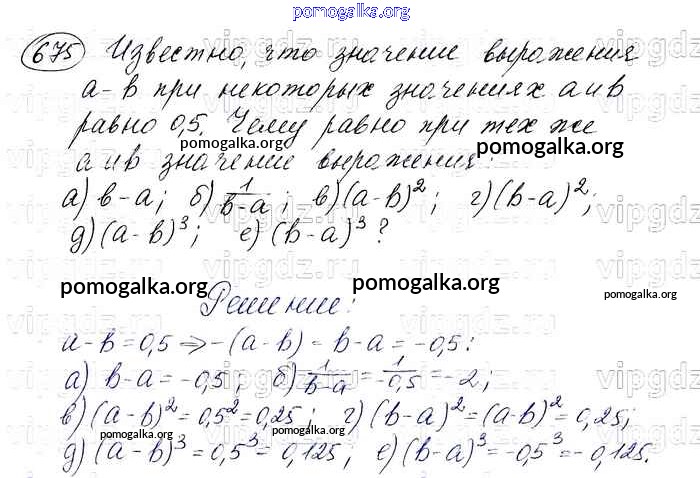 pomogalka.org
675 Известно, что значение выражения
a - b при некоторых значениях a и b
равно 0,5. Чему равно при тех же
a и b значение выражения:
pomogalka.org
а) b-a; б) 1/(b-a); в) (a-b)²; г) (b-a)²;
д) (a-b)³; е) (b-a)³?
pomogalka.org pomogalka.org pomogalka.org
Решение:
a-b=0,5 ⇒ -(a-b) = b-a = -0,5:
а) b-a = -0,5; б) 1/(b-a) = 1/-0,5 = -2;
в) (a-b)² = 0,5² = 0,25; г) (b-a)² = (a-b)² = 0,25;
pomogalka.org pomogalka.org
д) (a-b)³ = 0,5³ = 0,125; е) (b-a)³ = -0,5³ = -0,125.